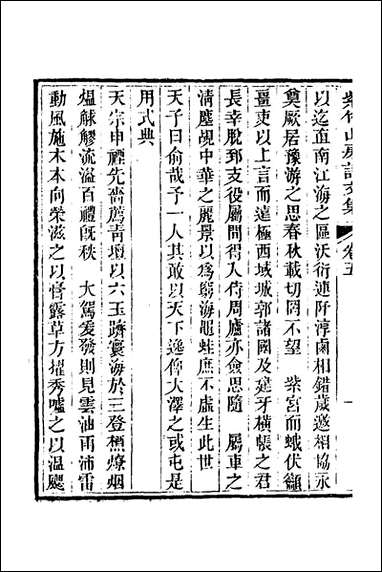 紫竹山房詩文集 卷五 一
以迄直南江海之區沃衍連阡淳鹵相錯歲遂相協永
奠厥居豫游之思春秋載切罔不望 紫宮而蛾伏籲
畺吏以上言而遠極西域城郭諸國及建牙橫帳之君
長幸脫郅支役屬間得入侍周廬亦僉思隨 屬車之
清塵覘中華之麗景以爲窮海黽蛙庶不虛生此世
天子曰俞哉予一人其敢以天下逸俾大澤之或屯是
用式典
天宗申禋先嗇薦青壇以六玉躋寰海於三登樵燎烟
熅觩艨流溢百禮旣秩 大駕爰發則見雲油雨沛雷
動風施木本向榮滋之以膏露草方擢秀噓之以温颸